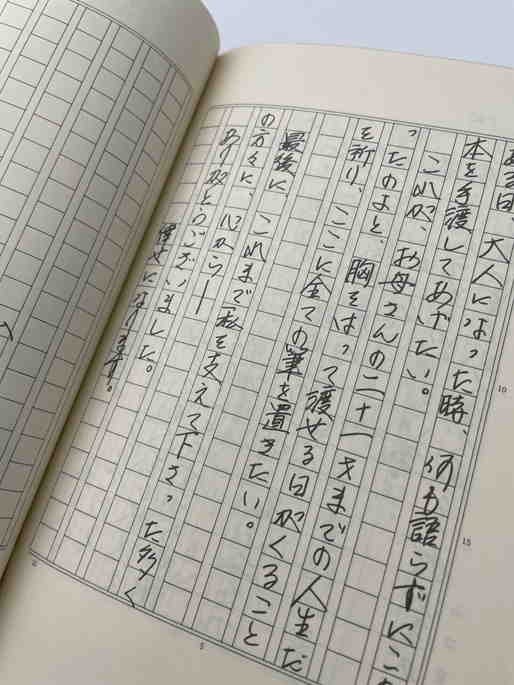 ある日、大人になった時、何も語らずにこの
本を手渡してあげたい。
これが、お母さんの二十一才までの人生だ
ったのよと、胸をはって渡せる日がくること
を祈り、ここに全ての筆を置きたい。
最後に、これまで私を支えて下さった多く
の方々に、心から——
ありがとうございました。
幸せになります。
10
15
5